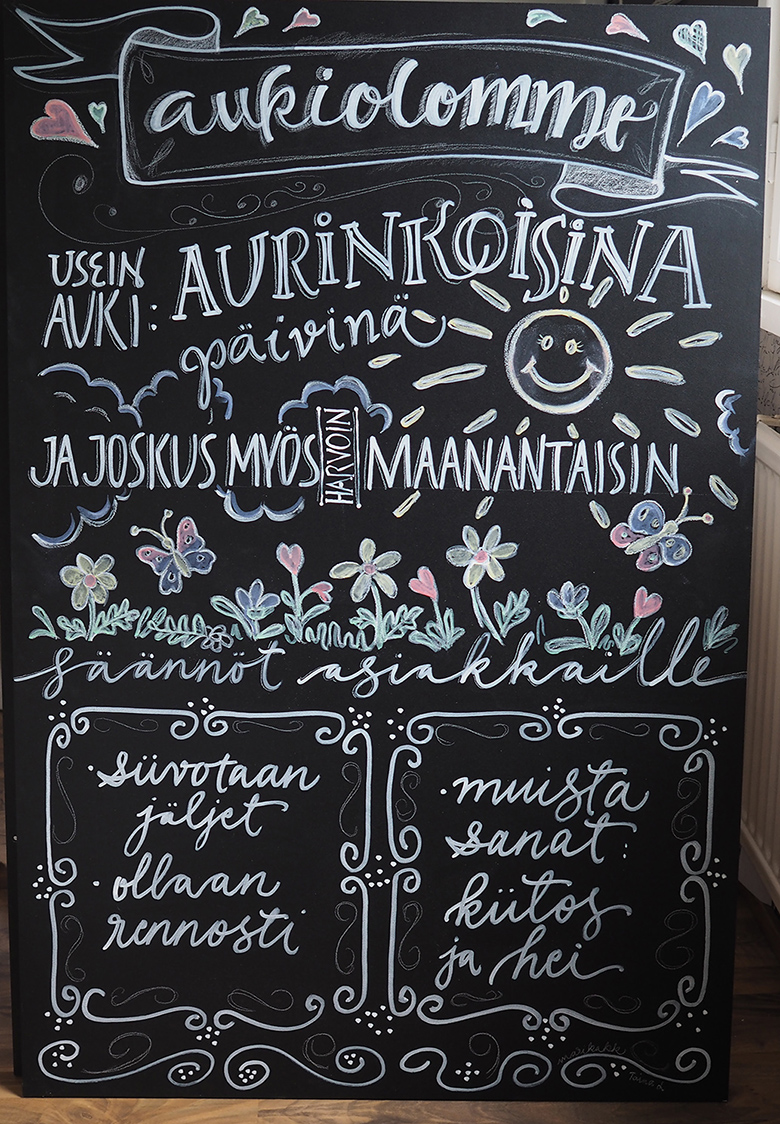 aukiolomme
USEIN
AUKI: AURINKOISINA
päivinä
JA JOSKUS MYÖS HARVOIN MAANANTAISIN
säännöt asiakkaille
· siivotaan
jäljet
· ollaan
rennosti
· muista
sanat:
kiitos
ja hei